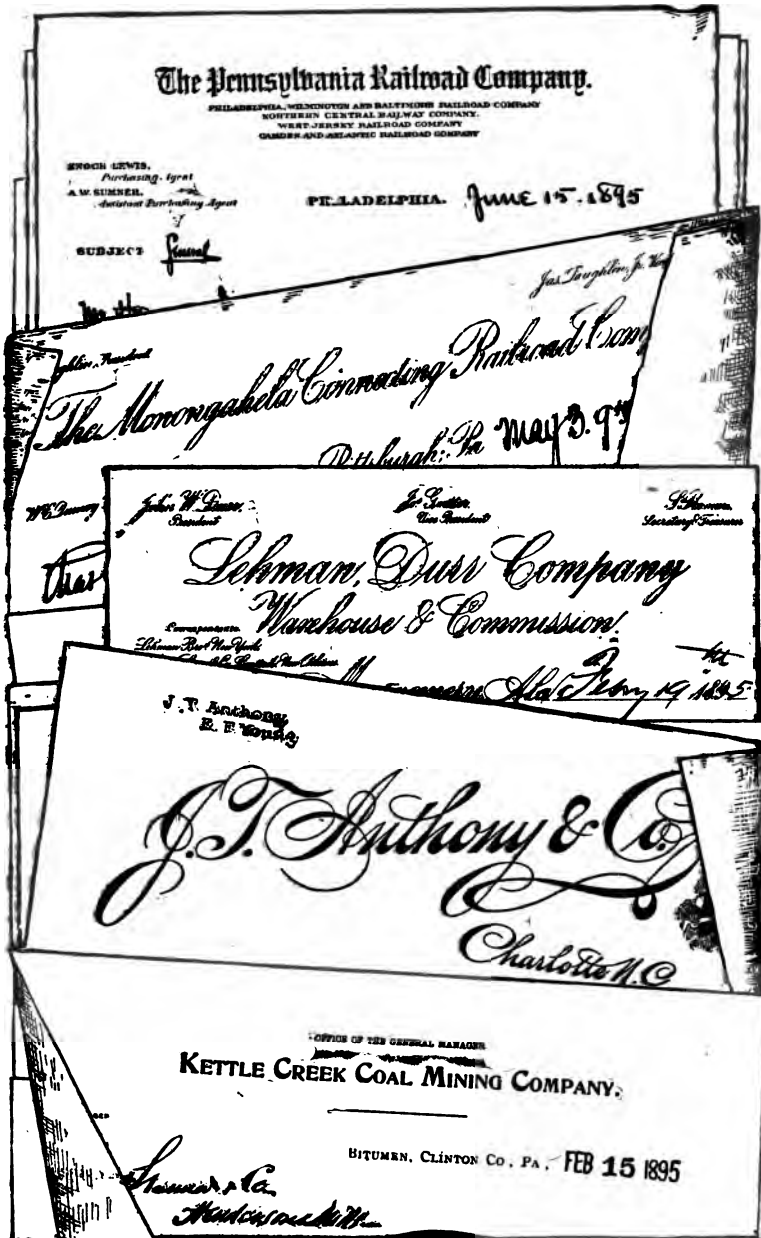 The Pennsylvania Railroad Company.
PHILADELPHIA, WILMINGTON AND BALTIMORE RAILROAD COMPANY
NORTHERN CENTRAL RAILWAY COMPANY.
WEST JERSEY RAILROAD COMPANY
CAMDEN AND ATLANTIC RAILROAD COMPANY
ENOCH LEWIS,
Purchasing Agent
A.W. SUMNER,
Assistant Purchasing Agent
PHILADELPHIA. June 15. 1895
SUBJECT General
Jas. Laughlin, Jr.
ghlin, President
The Monongahela Connecting Railroad Com
Pittsburgh: Pa May 3. 9
John W. Durr
President
Vice President
Secretary & Treasurer
Lehman, Durr Company
Warehouse & Commission.
Correspondents
Lehman Bros New York
New Orleans
Ala. Feby 19 1895
J. T. Anthony
E. F. Young
J. T. Anthony & Co.
Charlotte N.C
OFFICE OF THE GENERAL MANAGER
KETTLE CREEK COAL MINING COMPANY.
BITUMEN, CLINTON CO., PA., FEB 15 1895
& Co.